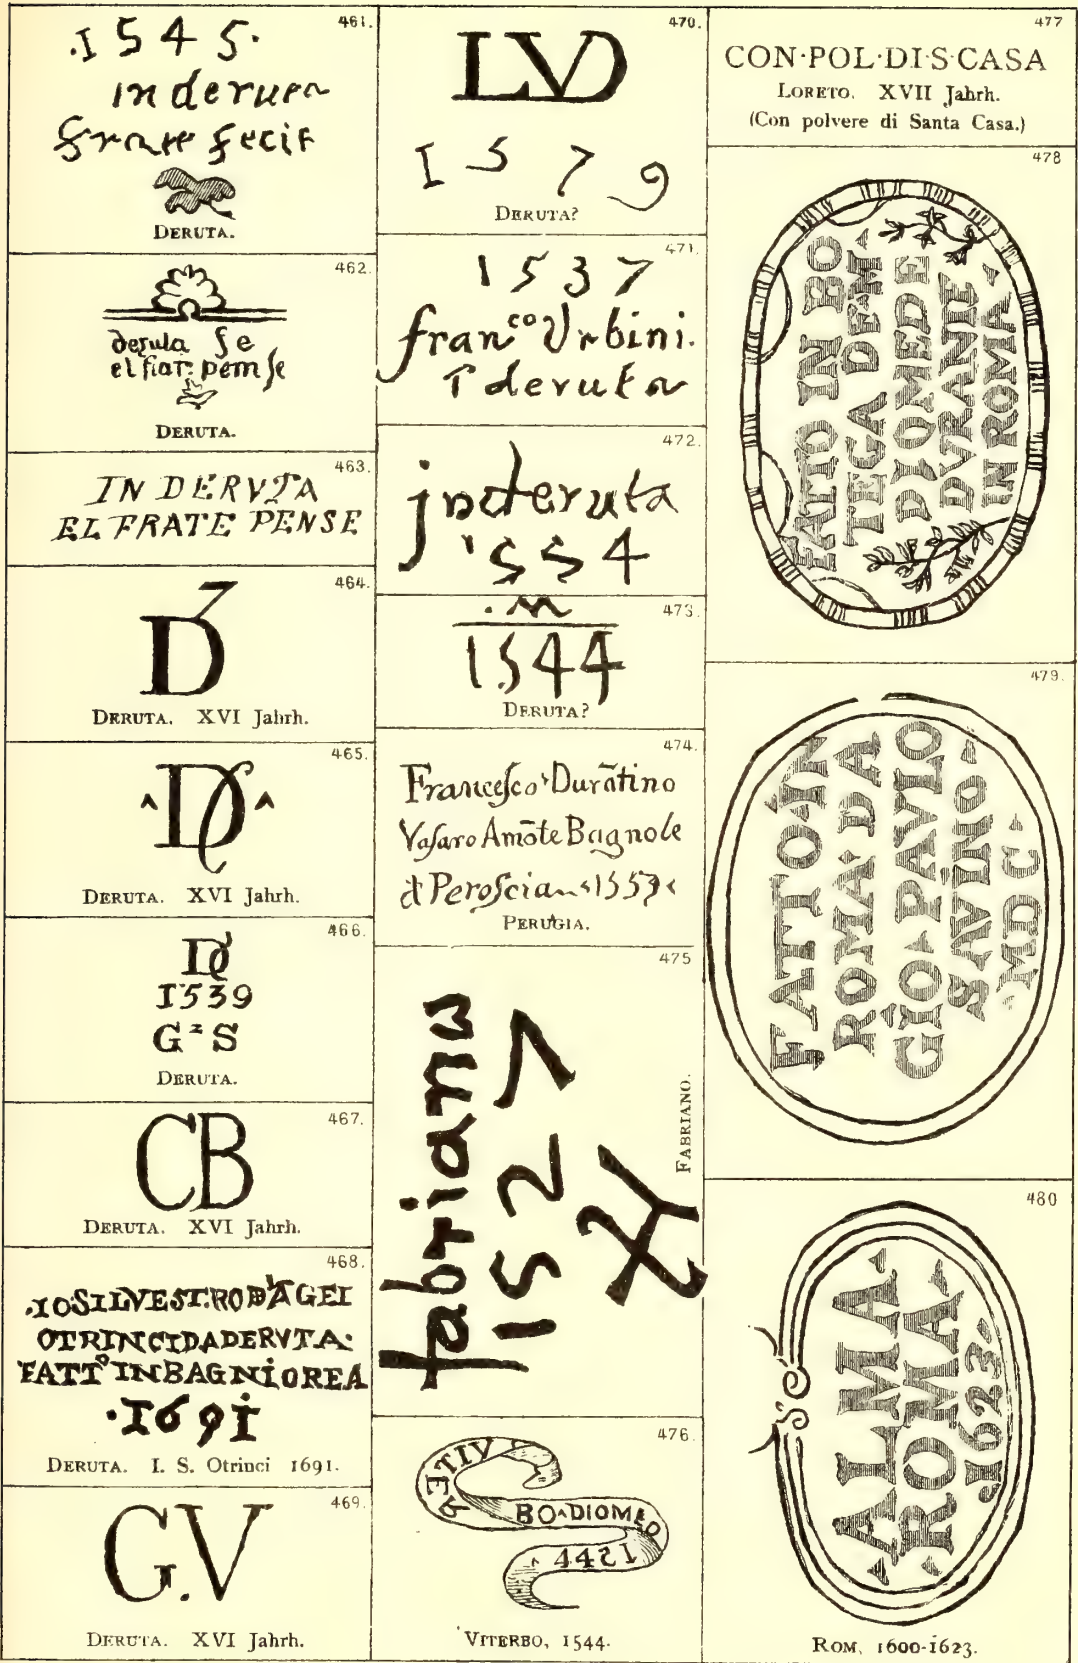 461.
·1545·
in deruta
frate fecit
DERUTA.
462.
deruta fe
el frat: pemse
DERUTA.
463.
IN DERVTA
EL FRATE PENSE
464.
D
DERUTA. XVI Jahrh.
465.
DERUTA. XVI Jahrh.
466.
1539
G²S
DERUTA.
467.
CB
DERUTA. XVI Jahrh.
468.
·IOSILVEST:RO D'AGEI
OTRINCIDADERVTA·
FATTº INBAGNIOREA
·1691
DERUTA. I. S. Otrinci 1691.
469.
G.V
DERUTA. XVI Jahrh.
470.
LVD
1579
DERUTA?
471.
1537
franᶜᵒ Vrbini.
deruta
472.
jnderuta
1554
473.
·M
1544
DERUTA?
474.
Francesco Durãtino
Vasaro Amõte Bagnole
Peroscia 1553
PERUGIA.
475
fabriano
1527
FABRIANO.
476.
VITER
BO DIOMEO
1544
VITERBO, 1544.
477
CON·POL·DI·S·CASA
LORETO. XVII Jahrh.
(Con polvere di Santa Casa.)
478
FATTO IN BO
TEGA DE M
DIOMEDE
DVRANTE
IN ROMA
479.
FATTO IN
ROMA DA
GIO PAVLO
SAVINO
MDC
480
ALMA
ROMA
1623
ROM, 1600-1623.